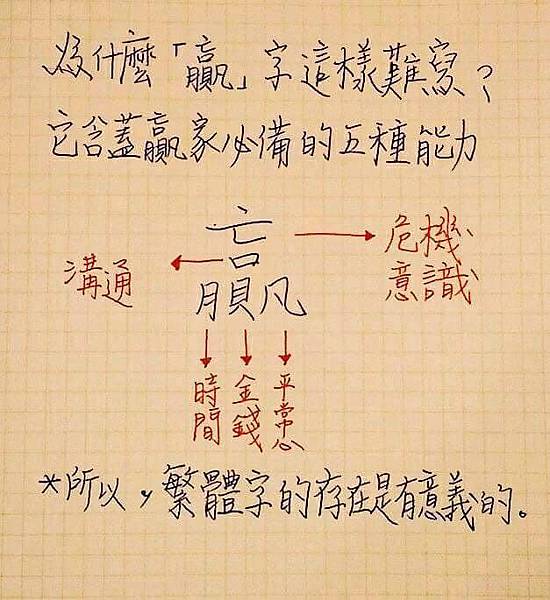 為什麼「贏」字這樣難寫?
它含蓋贏家必備的五種能力
贏
溝通
危機
意識
時間
金錢
平常心
*所以,繁體字的存在是有意義的。